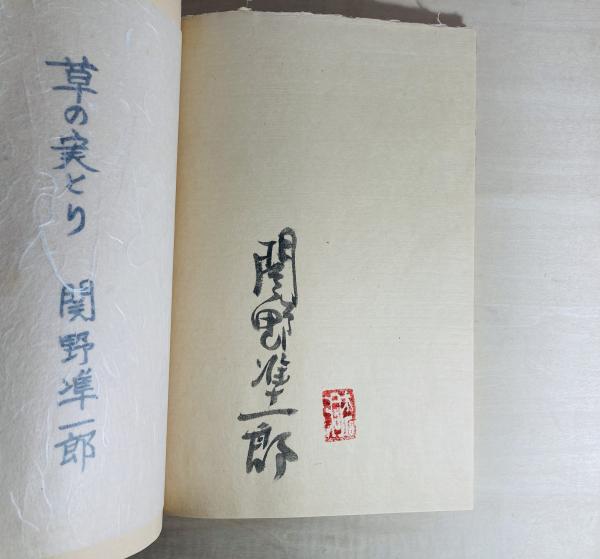 草の実とり 関野準一郎
関野準一郎